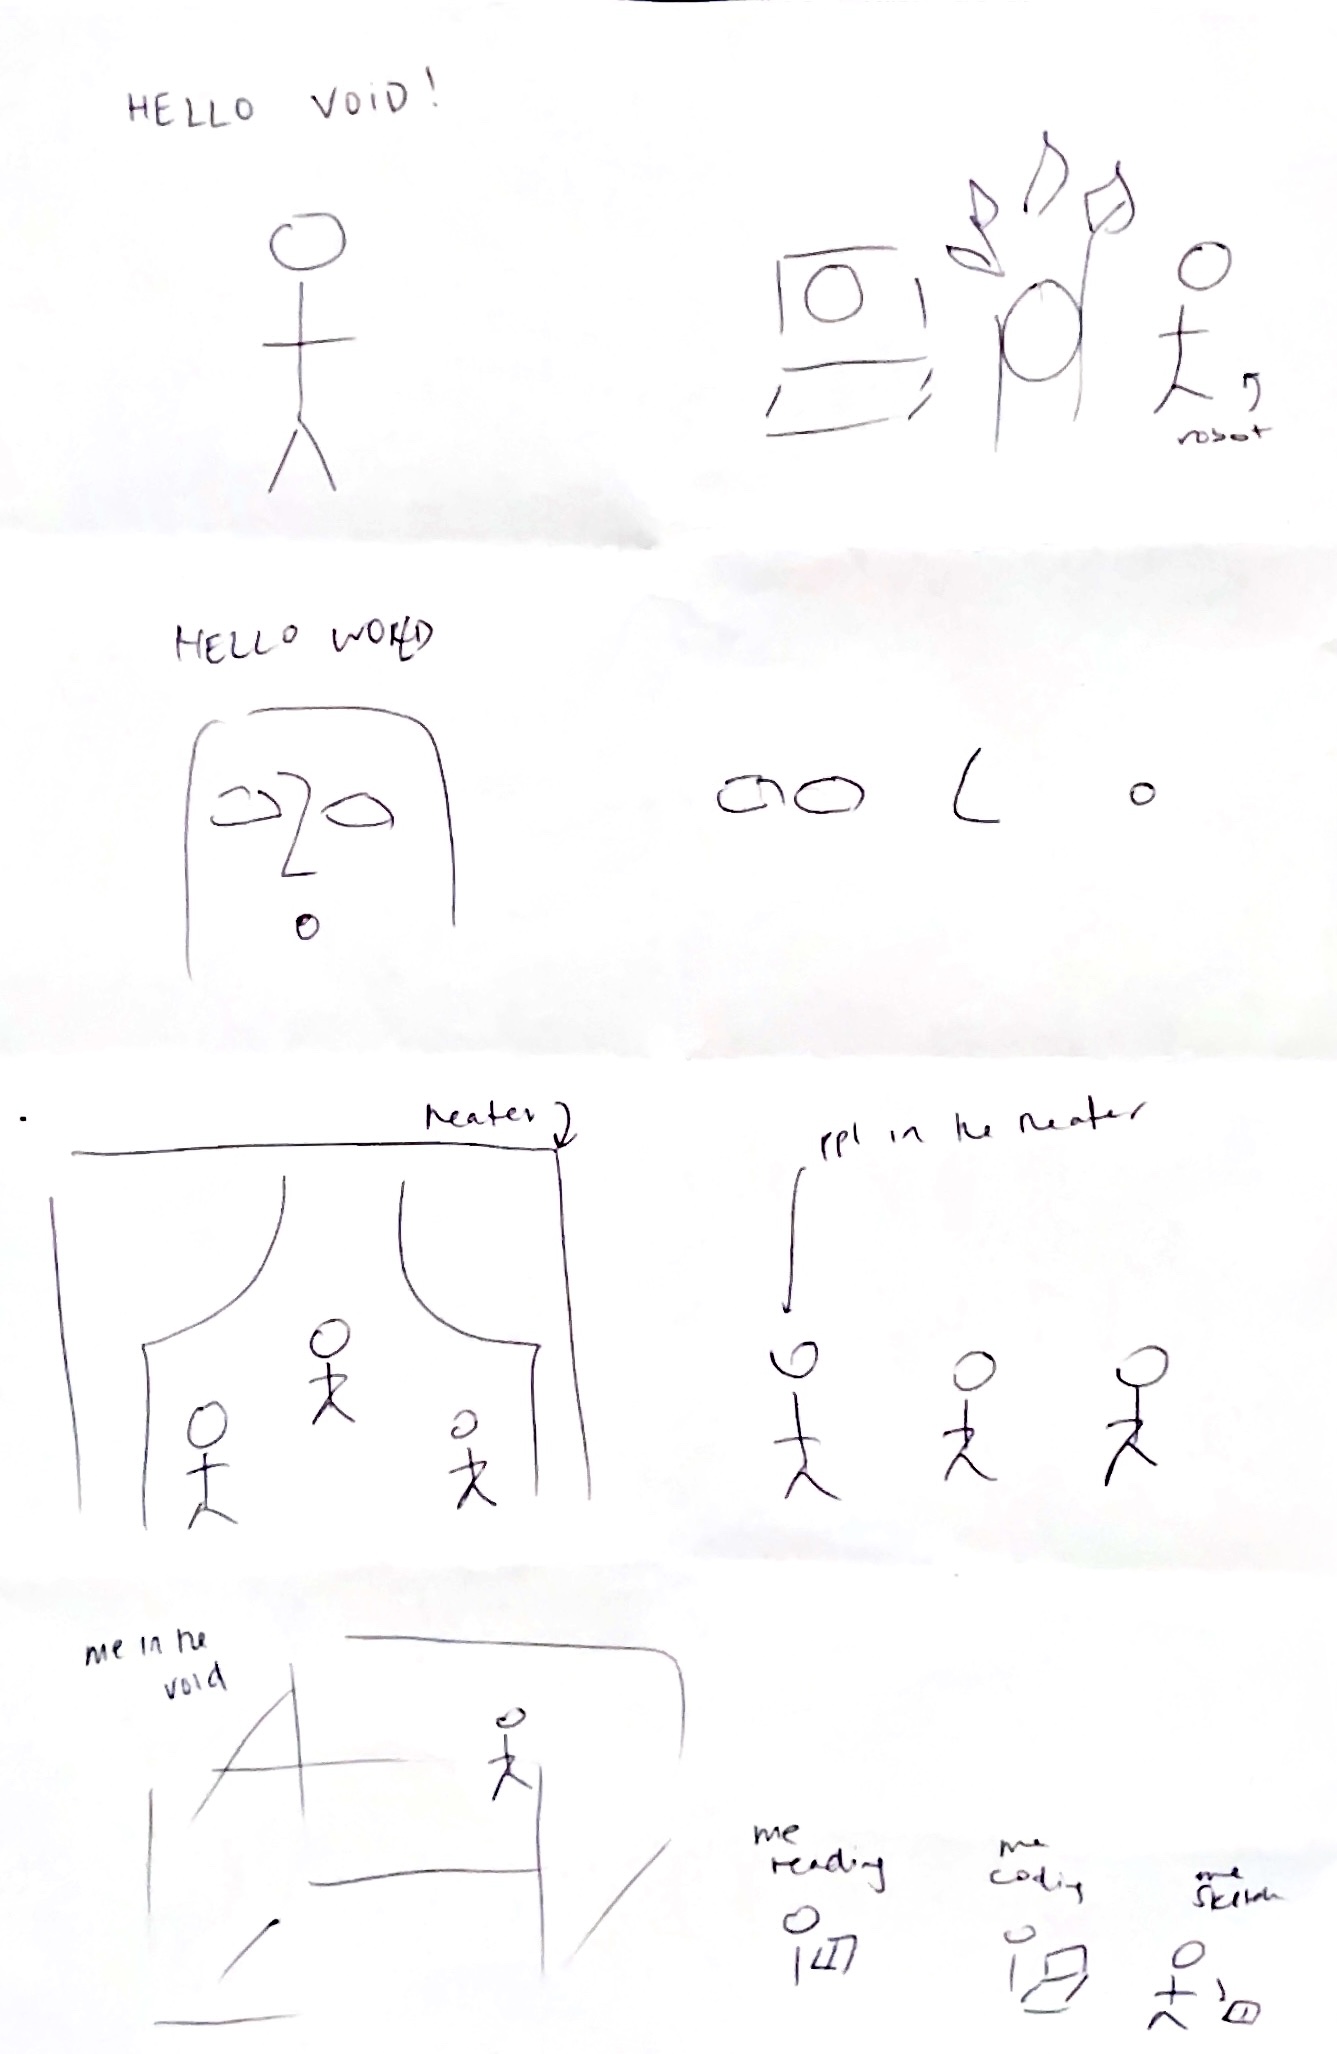 HELLO VOID!
robot
HELLO WORLD
theater
ppl in the theater
me in the
void
me
reading
me
coding
me
sketch